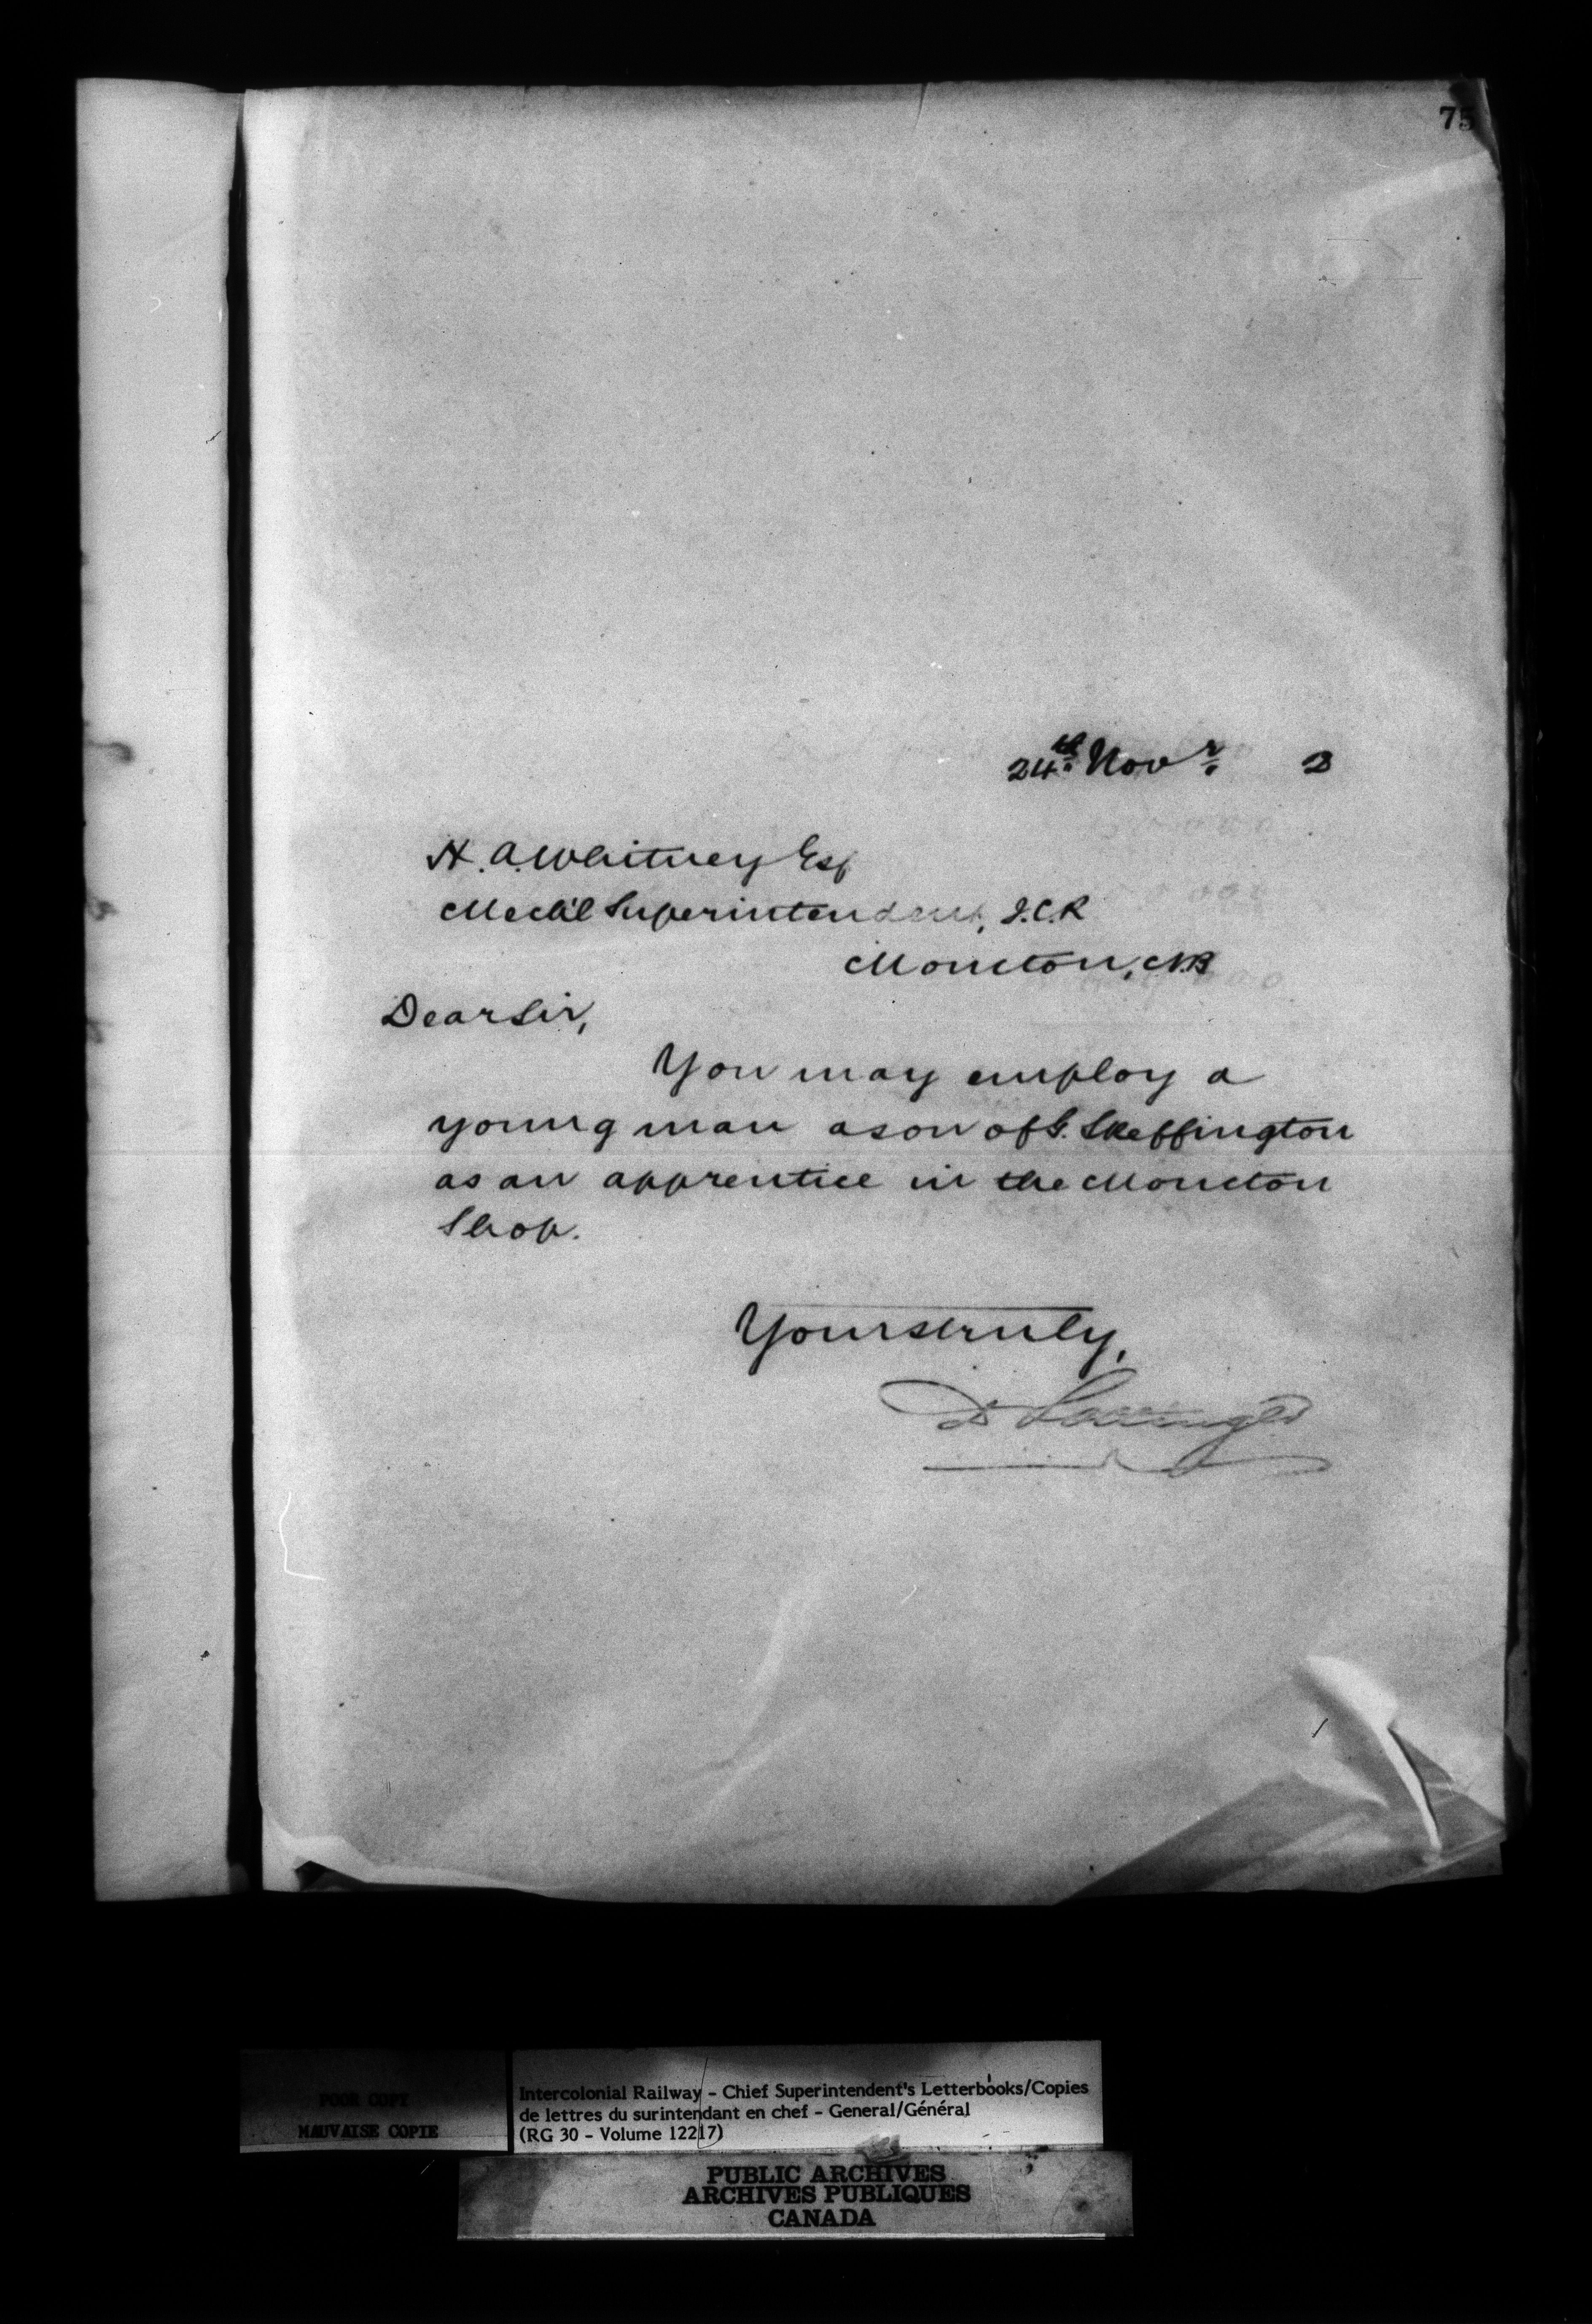 75
24th. Novr. 2
H. A. Whitney Esq
Mech'l Superintendent, I.C.R
Moncton, N.B
Dear Sir,
You may employ a
young man a son of G. Skeffington
as an apprentice in the Moncton
Shop.
Yours truly,
D Pottinger
POOR COPY
MAUVAISE COPIE
Intercolonial Railway - Chief Superintendent's Letterbooks/Copies
de lettres du surintendant en chef - General/Général
(RG 30 - Volume 12217)
PUBLIC ARCHIVES
ARCHIVES PUBLIQUES
CANADA